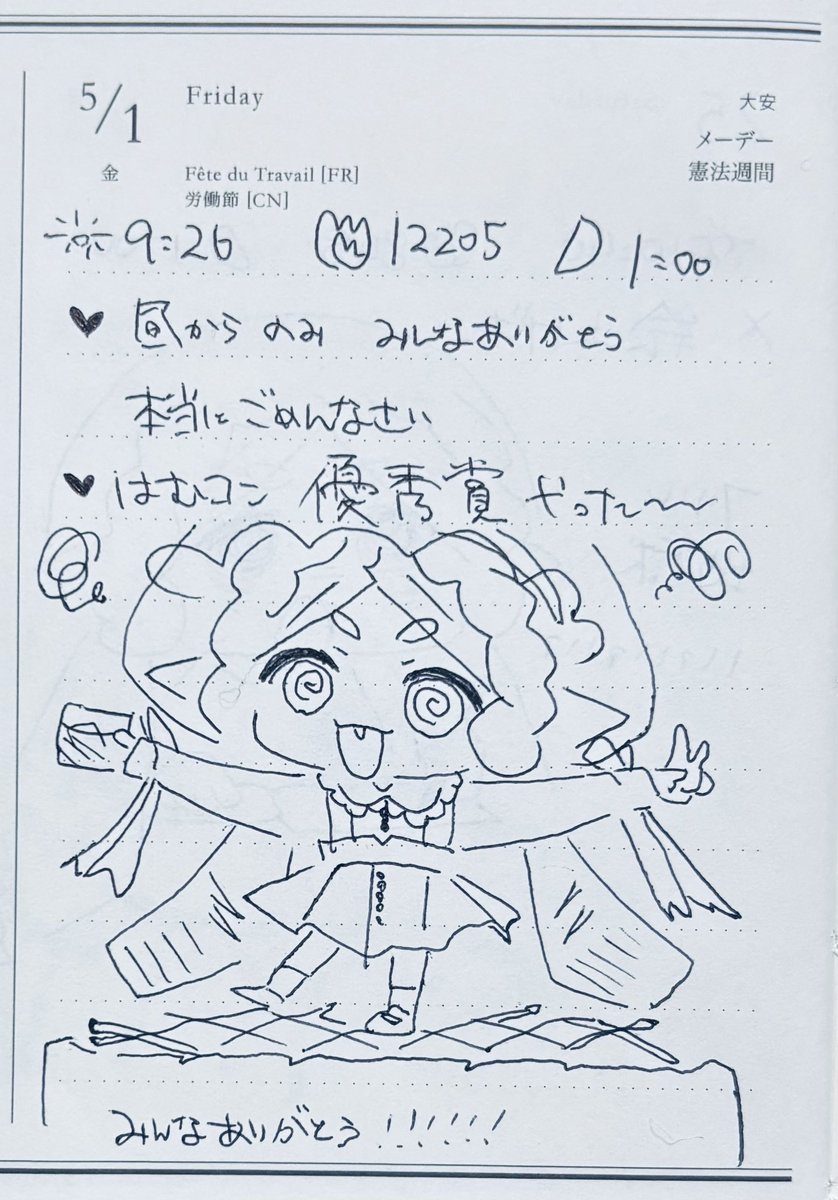 5/1 Friday 大安
メーデー
金 Fête du Travail [FR] 憲法週間
労働節 [CN]
9:26 12205 1:00
♥ 昼からのみ みんなありがとう
本当にごめんなさい
♥ はむコン 優秀賞 やった〜〜
みんなありがとう!!!!!!